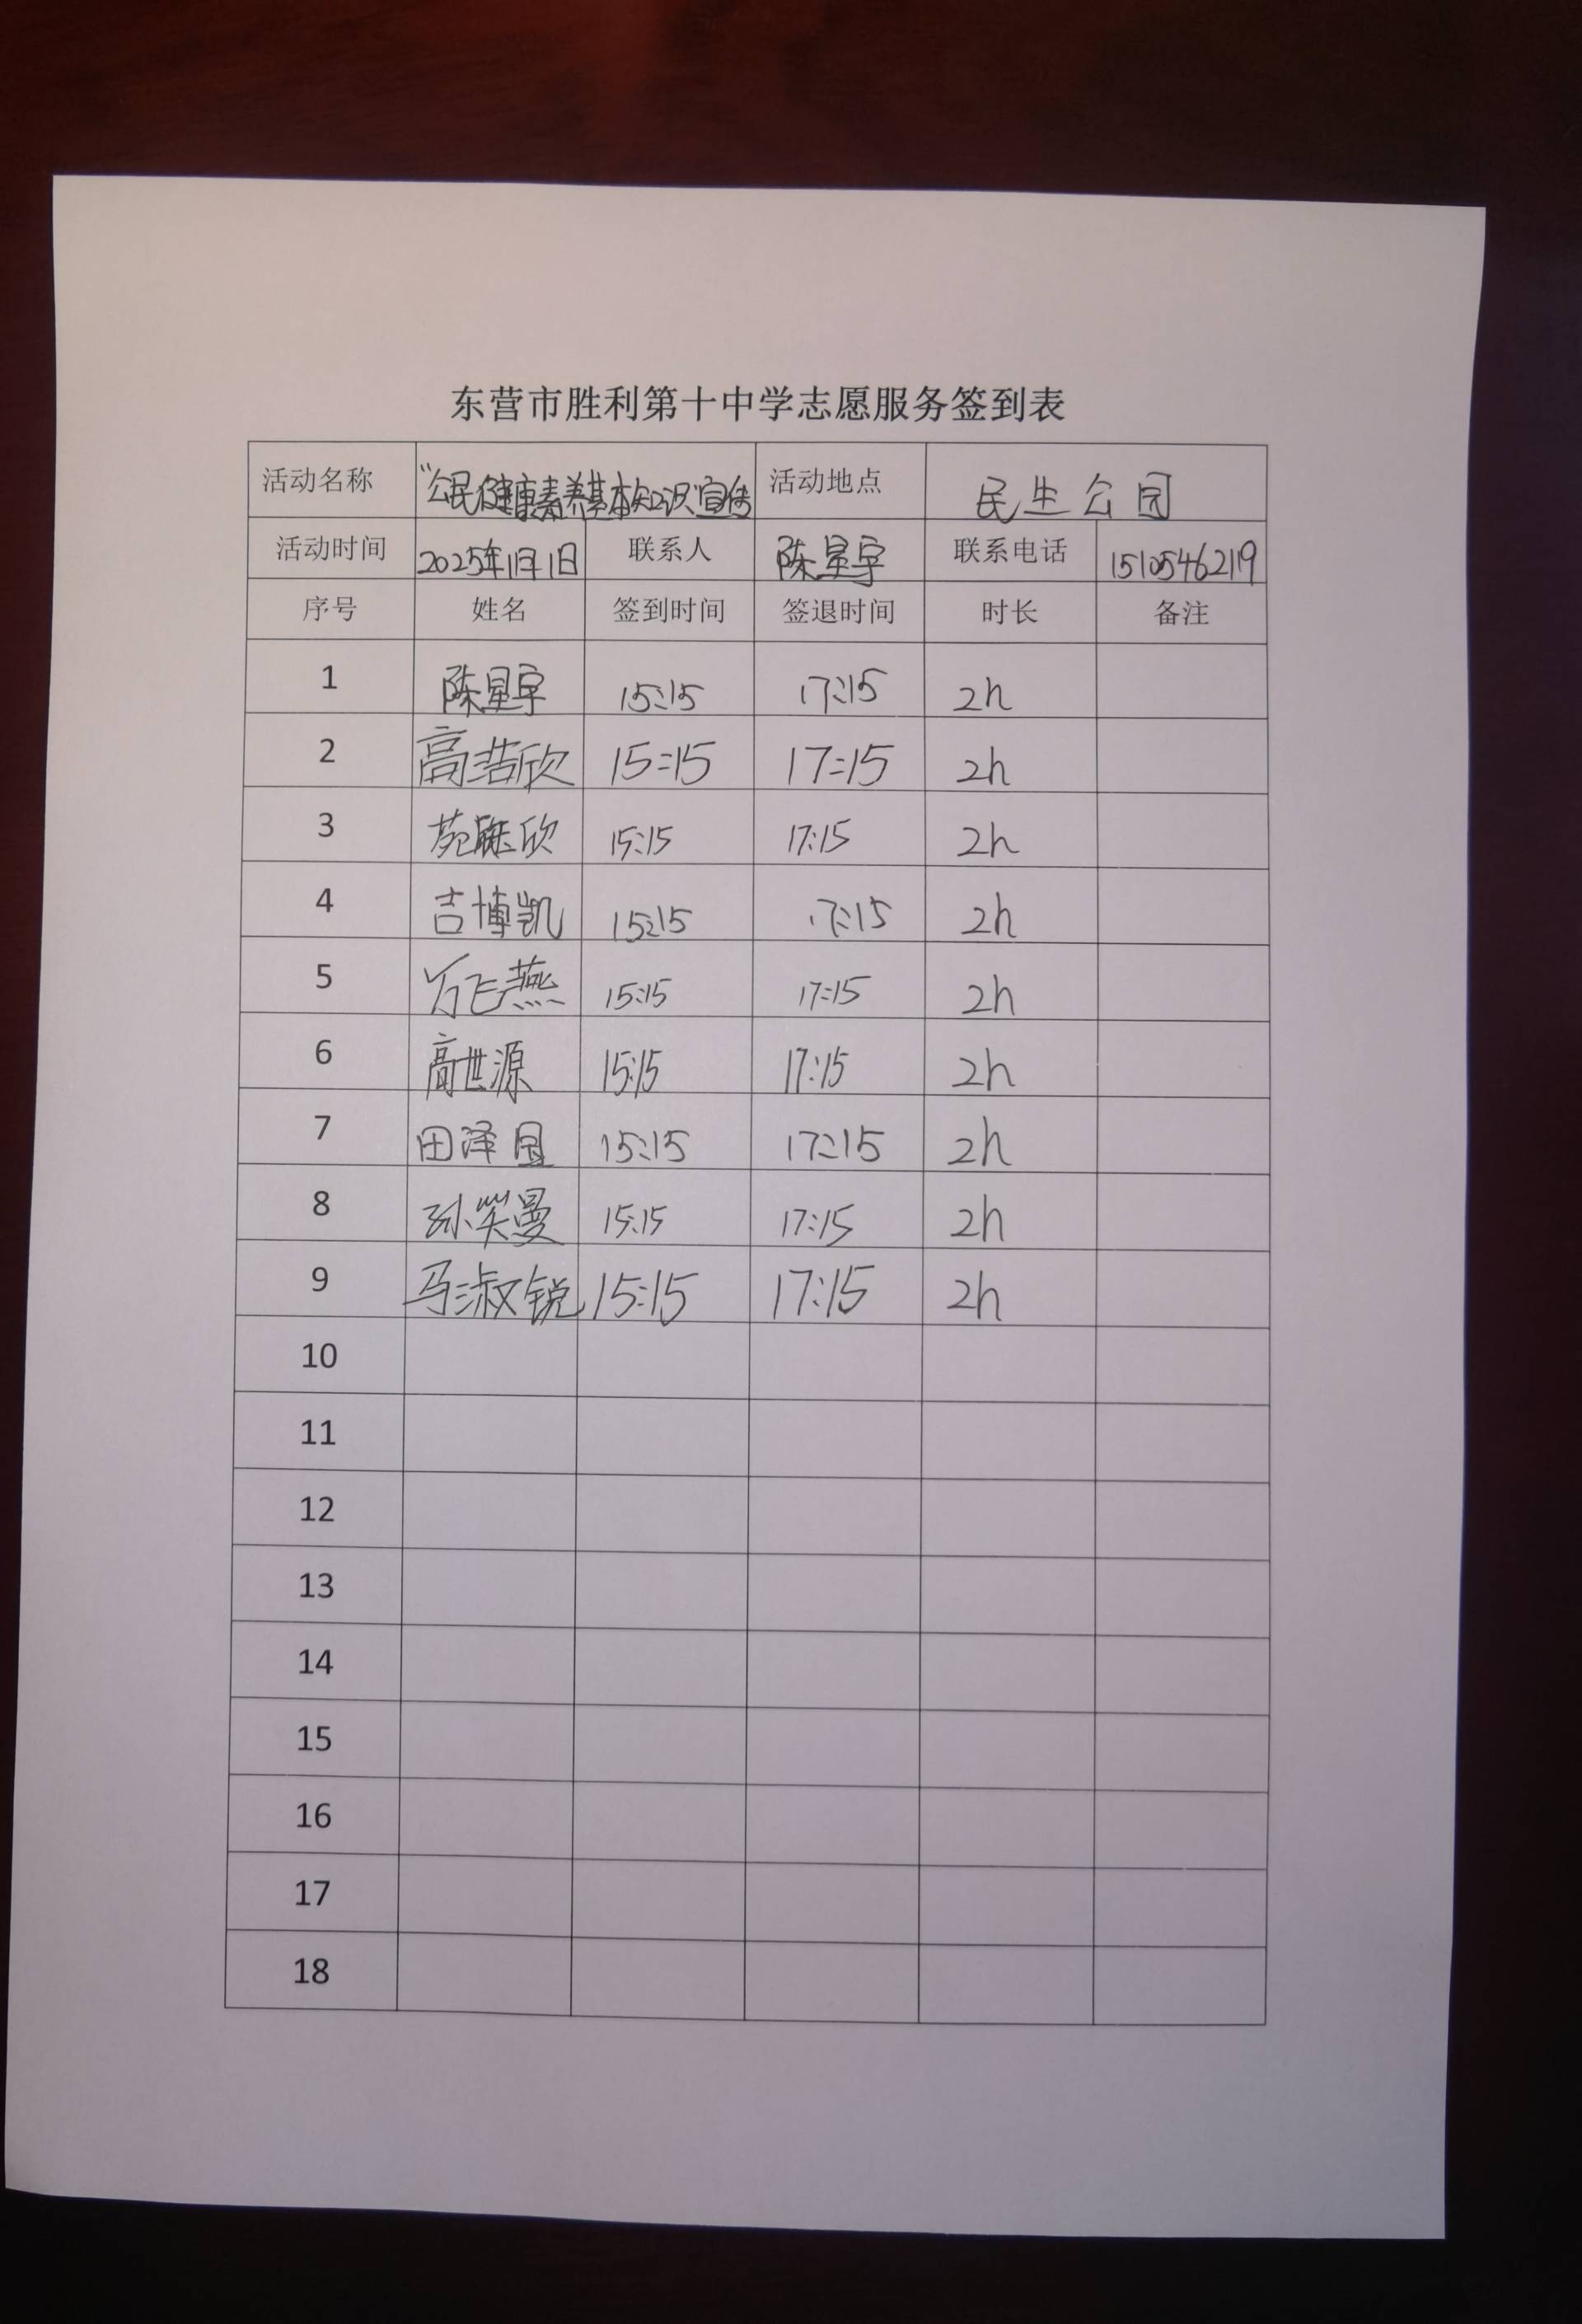 东营市胜利第十中学志愿服务签到表
活动名称 “公民健康素养基本知识”宣传 活动地点 民生公园
活动时间 2025年1月1日 联系人 陈星宇 联系电话 1510546219
序号 姓名 签到时间 签退时间 时长 备注
1 陈星宇 15:15 17:15 2h
2 高浩欣 15:15 17:15 2h
3 苑 欣 15:15 17:15 2h
4 吉博凯 15:15 17:15 2h
5 万飞燕 15:15 17:15 2h
6 高世源 15:15 17:15 2h
7 田泽国 15:15 17:15 2h
8 孙笑曼 15:15 17:15 2h
9 马淑锐 15:15 17:15 2h
10
11
12
13
14
15
16
17
18